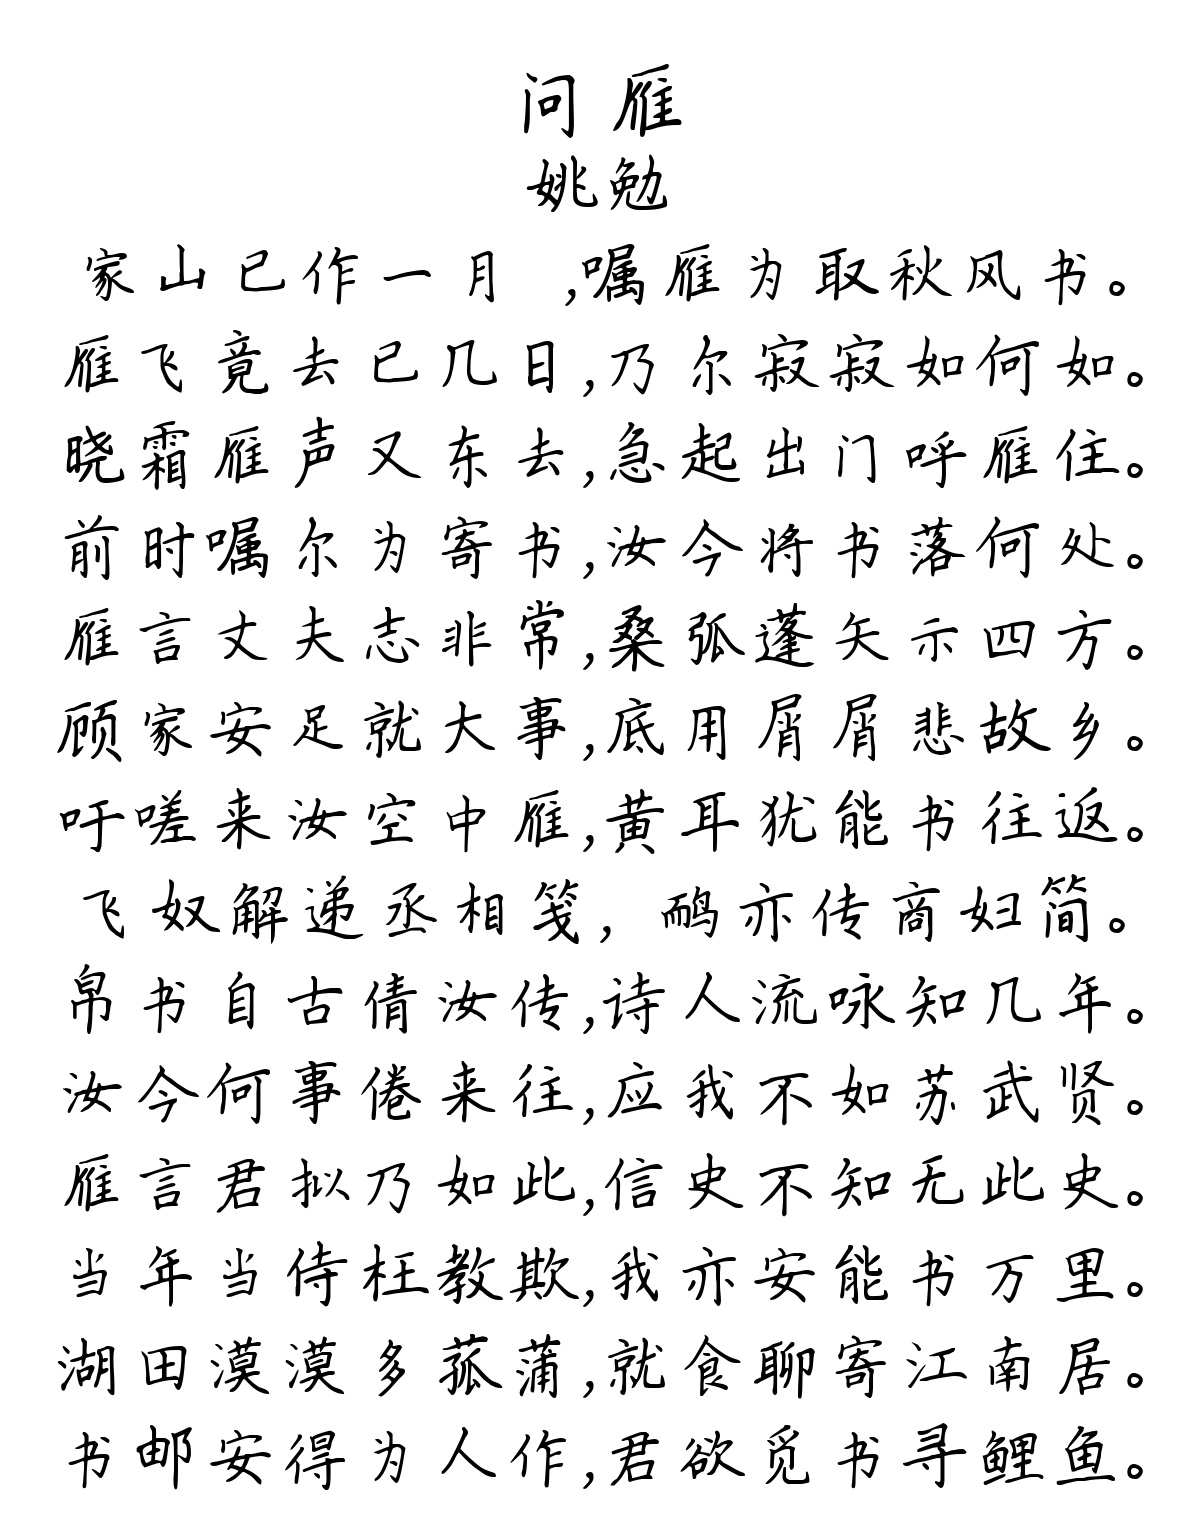 问雁
姚勉
家山已作一月 ,嘱雁为取秋风书。
雁飞竟去已几日,乃尔寂寂如何如。
晓霜雁声又东去,急起出门呼雁住。
前时嘱尔为寄书,汝今将书落何处。
雁言丈夫志非常,桑弧蓬矢示四方。
顾家安足就大事,底用屑屑悲故乡。
吁嗟来汝空中雁,黄耳犹能书往返。
飞奴解递丞相笺，鸸亦传商妇简。
帛书自古倩汝传,诗人流咏知几年。
汝今何事倦来往,应我不如苏武贤。
雁言君拟乃如此,信史不知无此史。
当年当侍枉教欺,我亦安能书万里。
湖田漠漠多菰蒲,就食聊寄江南居。
书邮安得为人作,君欲觅书寻鲤鱼。